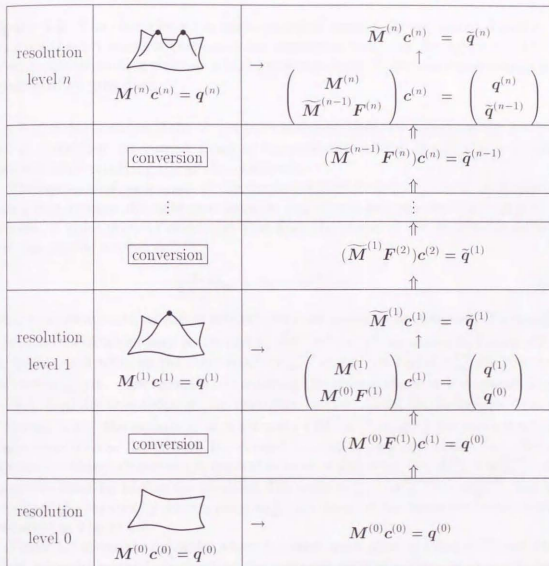 resolution
level n
M^(n) c^(n) = q^(n)
→
M̃^(n) c^(n) = q̃^(n)
↑
( M^(n) ; M̃^(n-1) F^(n) ) c^(n) = ( q^(n) ; q̃^(n-1) )
⇑
conversion
(M̃^(n-1) F^(n)) c^(n) = q̃^(n-1)
⇑
⋮
⇑
conversion
(M̃^(1) F^(2)) c^(2) = q̃^(1)
⇑
resolution
level 1
M^(1) c^(1) = q^(1)
→
M̃^(1) c^(1) = q̃^(1)
↑
( M^(1) ; M^(0) F^(1) ) c^(1) = ( q^(1) ; q^(0) )
⇑
conversion
(M^(0) F^(1)) c^(1) = q^(0)
⇑
resolution
level 0
M^(0) c^(0) = q^(0)
→
M^(0) c^(0) = q^(0)